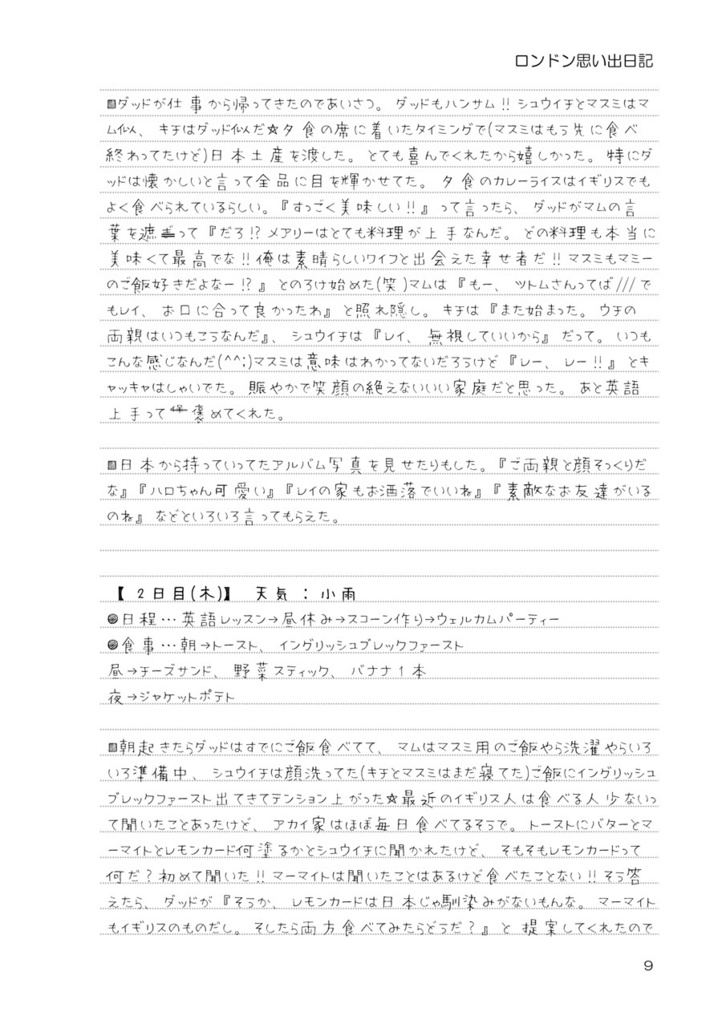 ロンドン思い出日記
▨ダッドが仕事から帰ってきたのであいさつ。ダッドもハンサム!!シュウイチとマスミはマ
ム似、キチはダッド似だ☆夕食の席に着いたタイミングで(マスミはもう先に食べ
終わってたけど)日本土産を渡した。とても喜んでくれたから嬉しかった。特にダ
ッドは懐かしいと言って全品に目を輝かせてた。夕食のカレーライスはイギリスでも
よく食べられているらしい。『すっごく美味しい!!』って言ったら、ダッドがマムの言
葉を遮って『だろ!?メアリーはとても料理が上手なんだ。どの料理も本当に
美味くて最高でな!!俺は素晴らしいワイフと出会えた幸せ者だ!!マスミもマミー
のご飯好きだよなー!?』とのろけ始めた(笑)マムは『もー、ツトムさんってば///で
もレイ、お口に合って良かったわ』と照れ隠し。キチは『また始まった。ウチの
両親はいつもこうなんだ』、シュウイチは『レイ、無視していいから』だって。いつも
こんな感じなんだ(^^;)マスミは意味はわかってないだろうけど『レー、レー!!』とキ
ャッキャはしゃいでた。賑やかで笑顔の絶えないいい家庭だと思った。あと英語
上手って褒めてくれた。
▨日本から持っていってたアルバム写真を見せたりもした。『ご両親と顔そっくりだ
な』『ハロちゃん可愛い』『レイの家もお洒落でいいね』『素敵なお友達がいる
のね』などといろいろ言ってもらえた。
【2日目(木)】 天気：小雨
●日程…英語レッスン→昼休み→スコーン作り→ウェルカムパーティー
●食事…朝→トースト、イングリッシュブレックファースト
昼→チーズサンド、野菜スティック、バナナ1本
夜→ジャケットポテト
▨朝起きたらダッドはすでにご飯食べてて、マムはマスミ用のご飯やら洗濯やらいろ
いろ準備中、シュウイチは顔洗ってた(キチとマスミはまだ寝てた)ご飯にイングリッシュ
ブレックファースト出てきてテンション上がった☆最近のイギリス人は食べる人少ないっ
て聞いたことあったけど、アカイ家はほぼ毎日食べてるそうで。トーストにバターとマ
ーマイトとレモンカード何塗るかとシュウイチに聞かれたけど、そもそもレモンカードって
何だ?初めて聞いた!!マーマイトは聞いたことはあるけど食べたことない!!そう答
えたら、ダッドが『そうか、レモンカードは日本じゃ馴染みがないもんな。マーマイト
もイギリスのものだし。そしたら両方食べてみたらどうだ?』と提案してくれたので
9